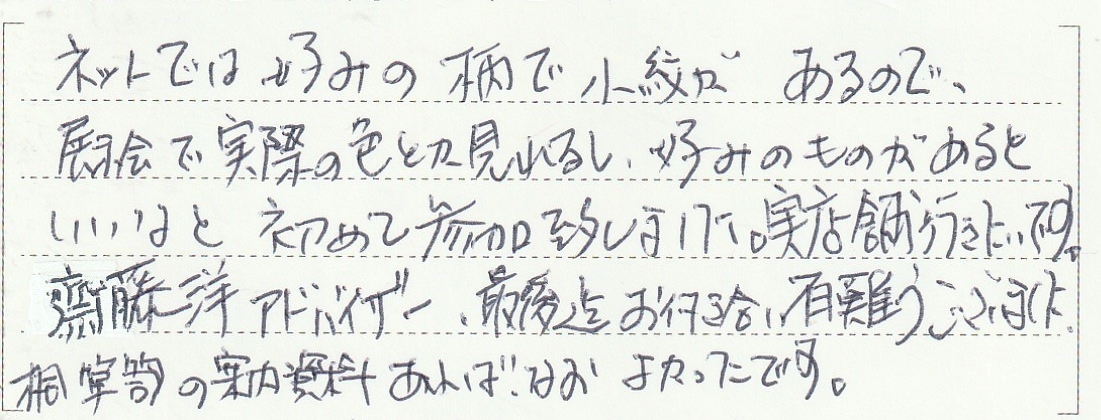 ネットでは好みの柄で小紋があるので、
展示会で実際の色とか見れるし、好みのものがあると
いいなと初めて参加致しました。実店舗行きたいです。
齋藤洋アドバイザー、最後迄お付き合い有難うございました。
桐箪笥の実力資料あればなおよかったです。